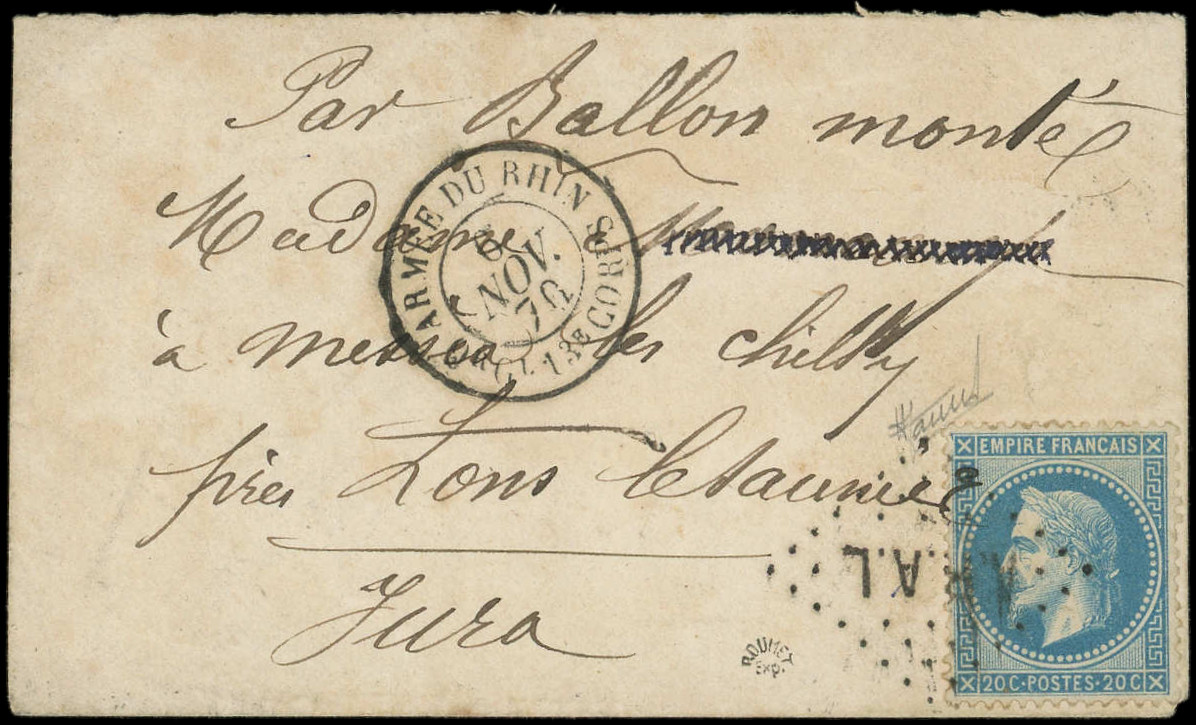 Par Ballon monté
Madame
à messia les chilly
près Lons le Saunier
Jura
ARMÉE DU RHIN
6
NOV.
70
13E CORPS
EMPIRE FRANÇAIS
20C·POSTES·20C
A.L
ROUMET
Exp.